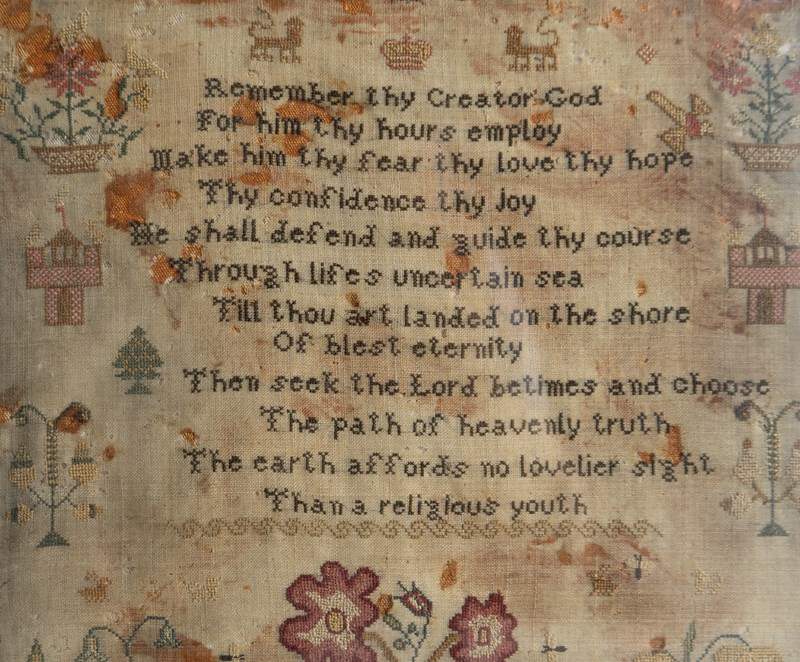 Remember thy Creator God
For him thy hours employ
Make him thy fear thy love thy hope
Thy confidence thy joy
He shall defend and guide thy course
Through lifes uncertain sea
Till thou art landed on the shore
Of blest eternity
Then seek the Lord betimes and choose
The path of heavenly truth
The earth affords no lovelier sight
Than a religious youth